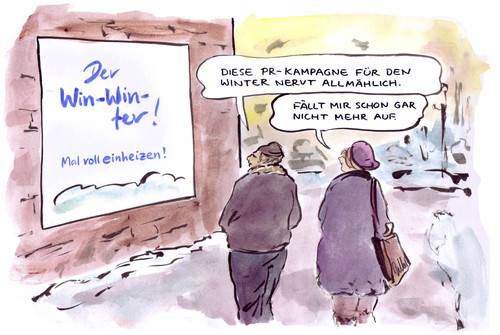 Der
Win-Win-
ter!
Mal voll einheizen!
DIESE PR-KAMPAGNE FÜR DEN
WINTER NERVT ALLMÄHLICH.
FÄLLT MIR SCHON GAR
NICHT MEHR AUF.